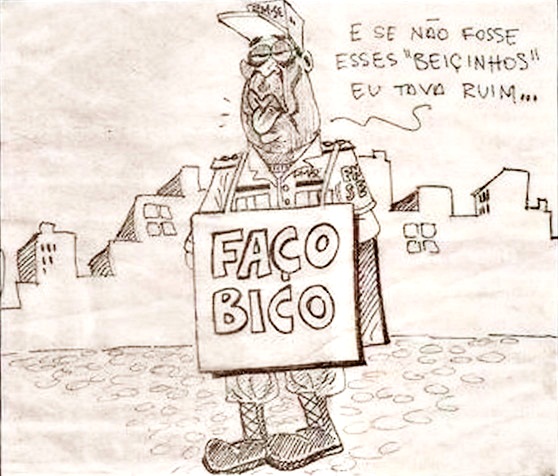 PM-SE
E SE NÃO FOSSE
ESSES "BEIÇINHOS"
EU TAVA RUIM...
PM
SE
FAÇO
BICO